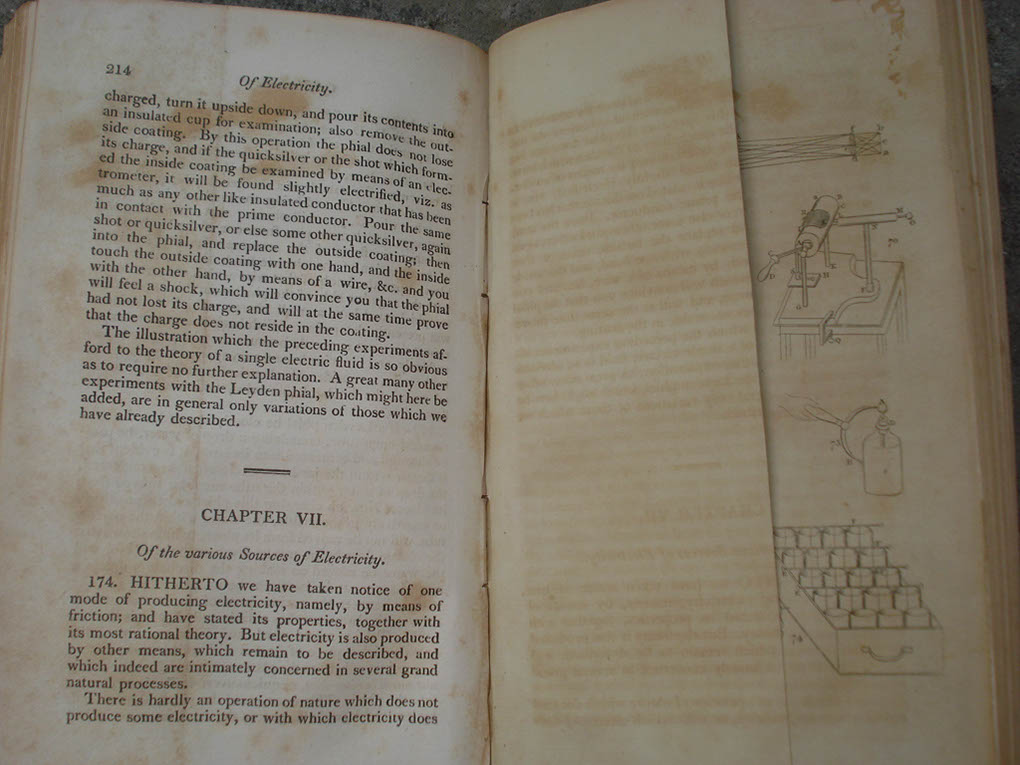 214
Of Electricity.
charged, turn it upside down, and pour its contents into
an insulated cup for examination; also remove the out-
side coating. By this operation the phial does not lose
its charge, and if the quicksilver or the shot which form-
ed the inside coating be examined by means of an elec-
trometer, it will be found slightly electrified, viz. as
much as any other like insulated conductor that has been
in contact with the prime conductor. Pour the same
shot or quicksilver, or else some other quicksilver, again
into the phial, and replace the outside coating; then
touch the outside coating with one hand, and the inside
with the other hand, by means of a wire, &c. and you
will feel a shock, which will convince you that the phial
had not lost its charge, and will at the same time prove
that the charge does not reside in the coating.
The illustration which the preceding experiments af-
ford to the theory of a single electric fluid is so obvious
as to require no further explanation. A great many other
experiments with the Leyden phial, which might here be
added, are in general only variations of those which we
have already described.
CHAPTER VII.
Of the various Sources of Electricity.
174. HITHERTO we have taken notice of one
mode of producing electricity, namely, by means of
friction; and have stated its properties, together with
its most rational theory. But electricity is also produced
by other means, which remain to be described, and
which indeed are intimately concerned in several grand
natural processes.
There is hardly an operation of nature which does not
produce some electricity, or with which electricity does